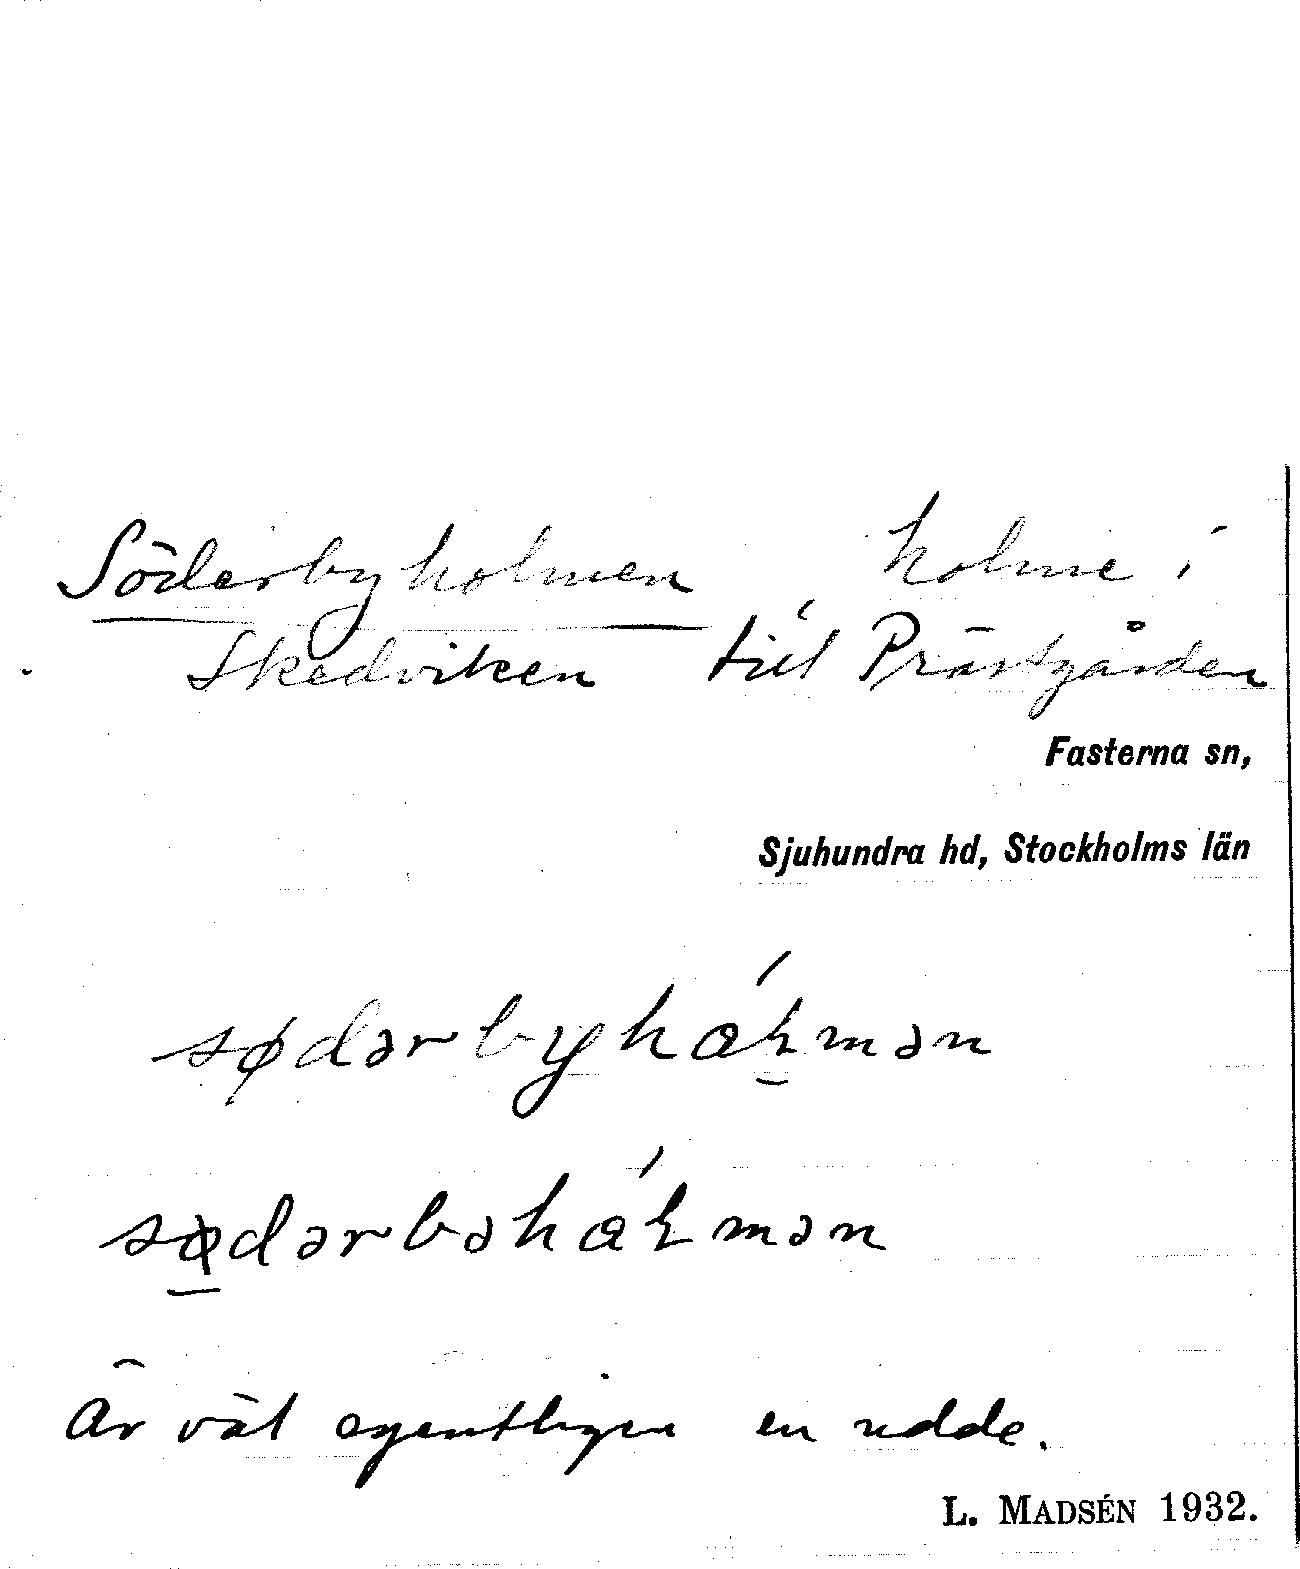 Söderbyholmen holme i
Skedviken till Prästgården
Fasterna sn,
Sjuhundra hd, Stockholms län
sødərbyhɷ́ɬmən
sødərbəhɷ́ɬmən
Är väl egentligen en udde.
L. MADSÉN 1932.